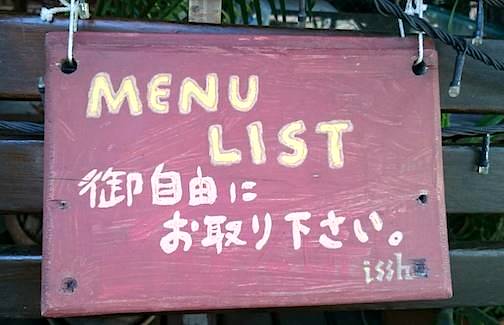 MENU
LIST
御自由に
お取り下さい。